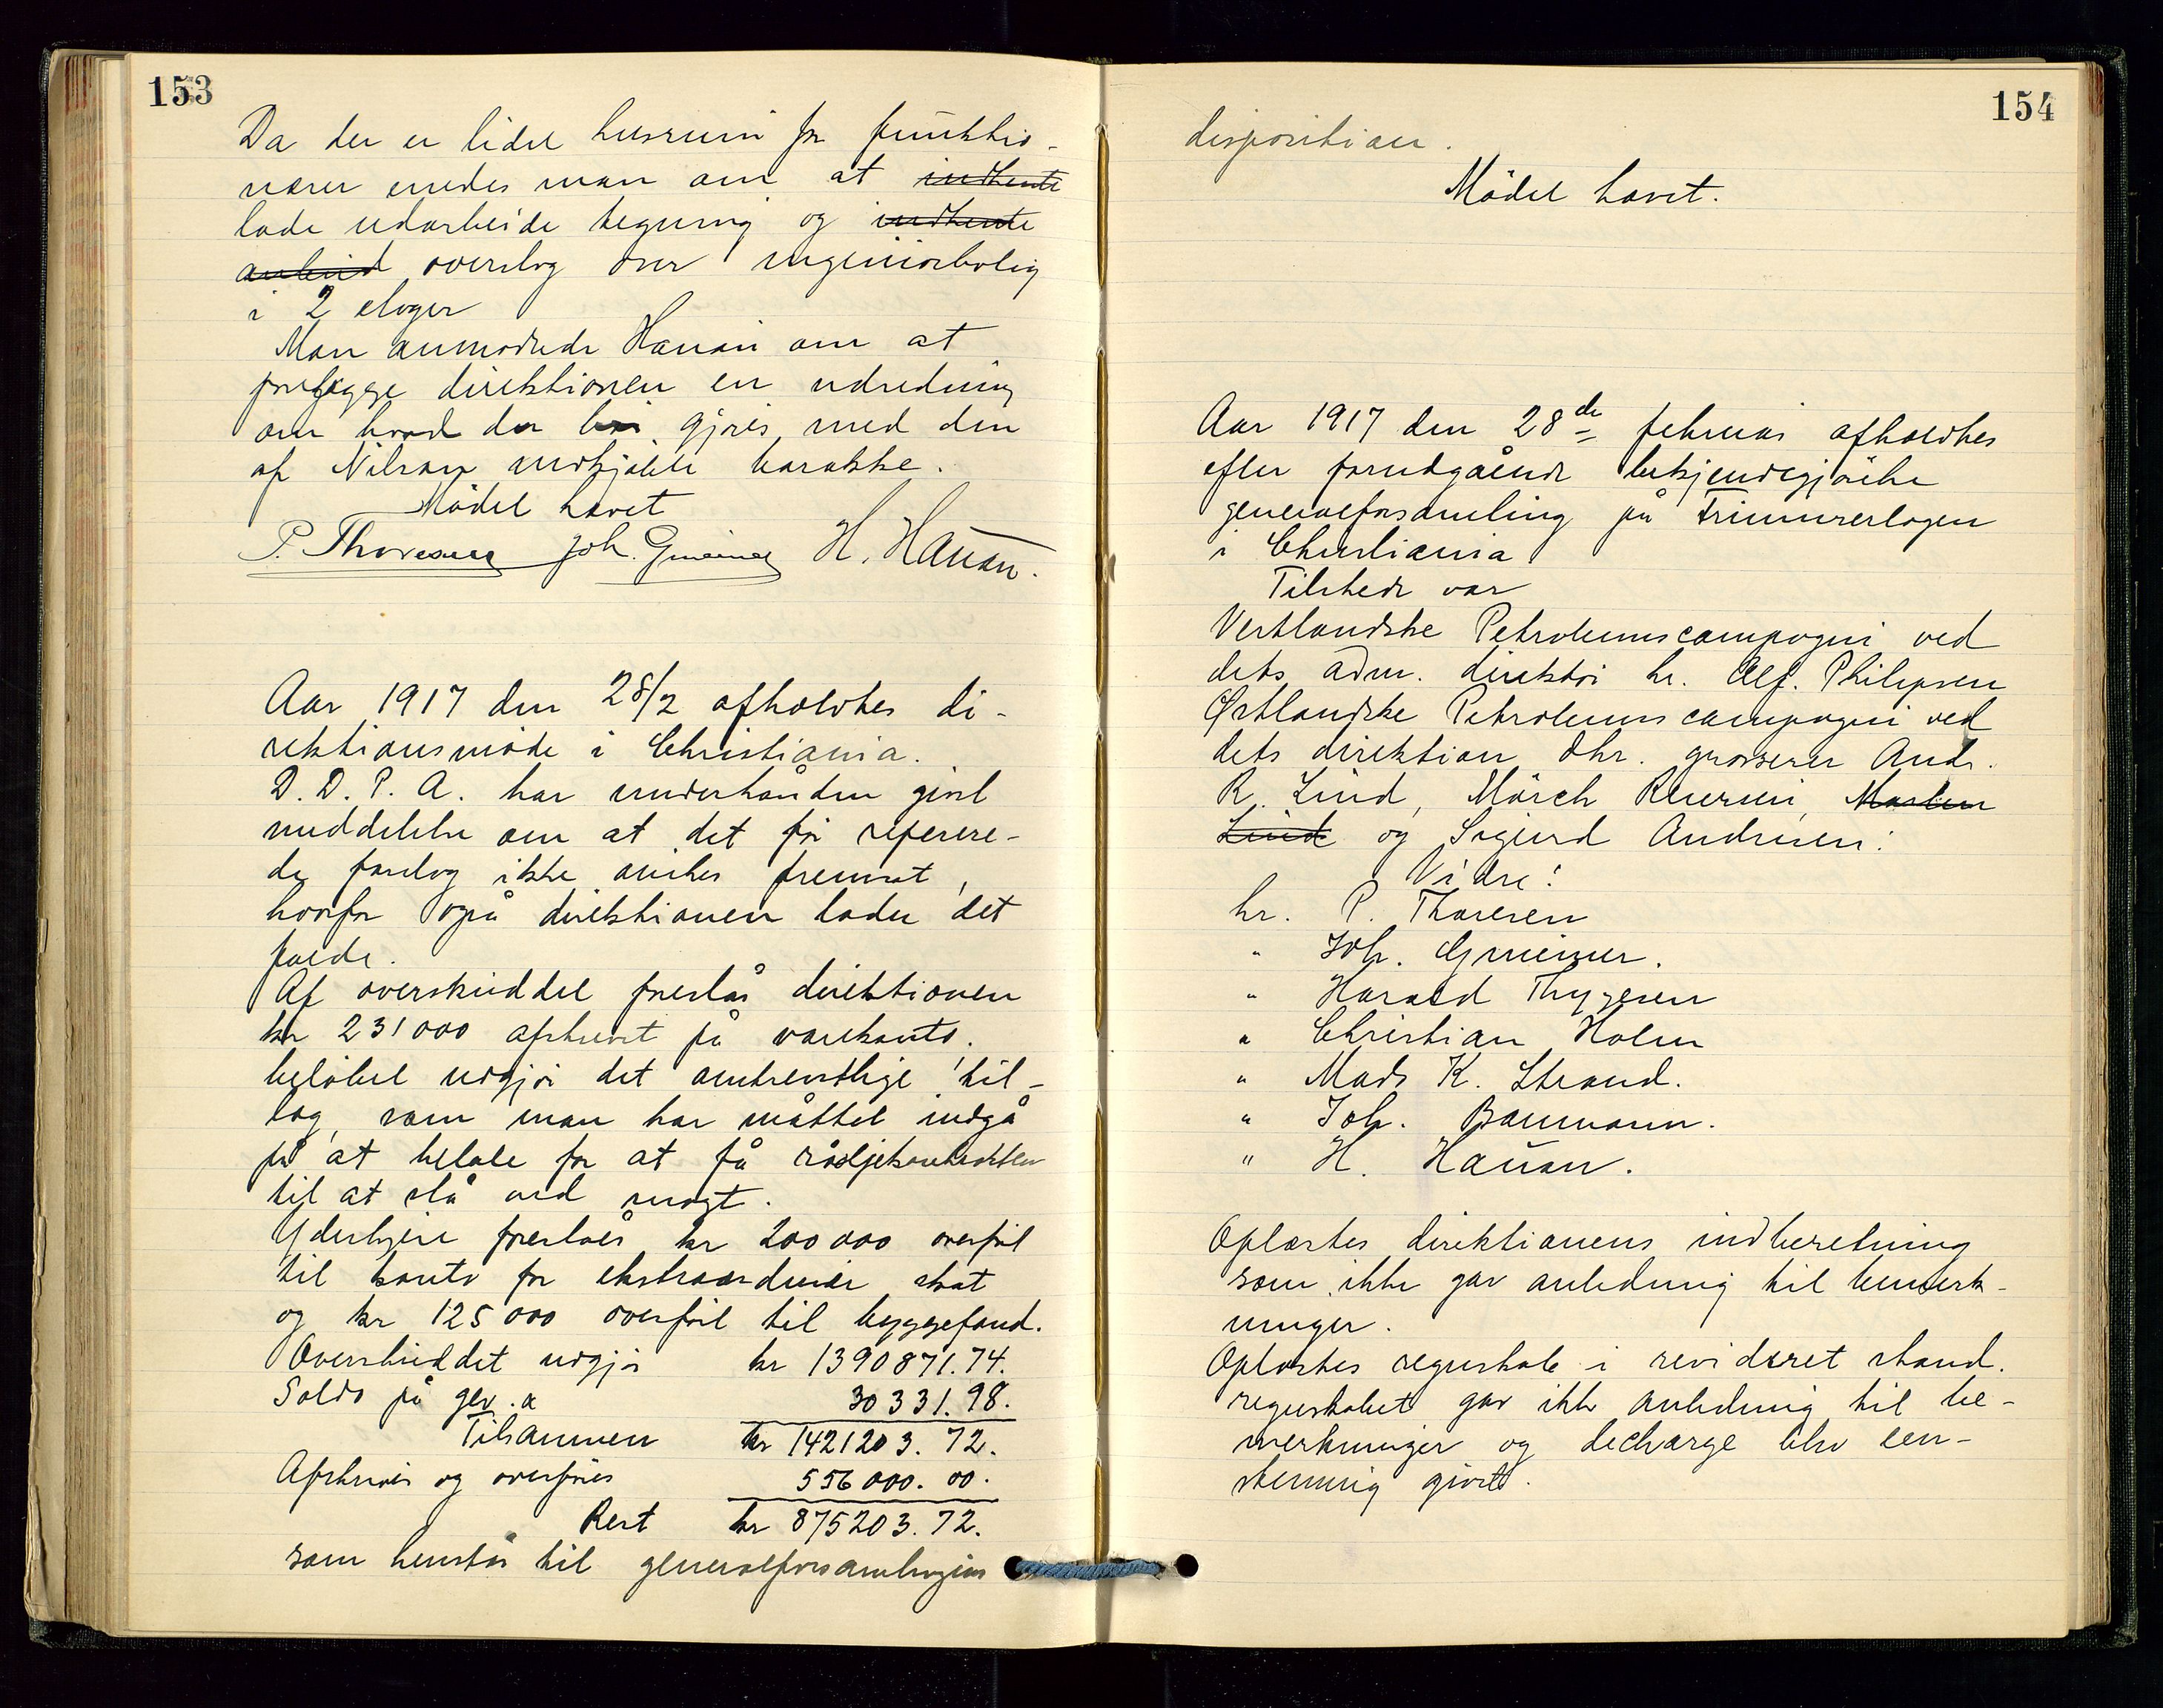 153
Da der er lidet husrum for funktio-
nærer enedes man om at indhente
lade udarbeide tegning og indhente
anbud overslag over ingeniørbolig
i 2 etager
Man anmodede Hauan om at
forelægge direktionen en udredning
om hvad der bør gjøres med den
af Nilsen indkjøbte barakke.
Mödet hævet
P. Thoresen Joh. Grueiner H. Hauan.
Aar 1917 den 28/2 afholdtes di-
rektionsmøde i Christiania.
D. D. P. A. har underhånden givet
meddelelse om at det før referere-
de forslag ikke ønskes fremsat,
hvorfor også direktionen lader det
falde.
Af overskuddet foreslår direktionen
kr 231000 afskrevet på varekonto.
beløbet udgjør det omtrentlige til-
læg, som man har måttet indgå
på at betale for at få råoljekontrakten
til at stå ved magt.
Yderligere foreslåes kr 200000 overført
til konto for ekstraordinær skat
og kr 125000 overført til byggefond.
Overskuddet udgjør kr 1390871.74.
Saldo på gev. a 30331.98.
Tilsammen kr 1421203.72.
Afskrives og overføres 556000.00.
Rest kr 875203.72.
som henstår til generalforsamlingens
154
disposition.
Mödet hævet.
Aar 1917 den 28de februar afholdtes
efter forudgående bekjendtgjørelse
generalforsamling på Frimurerlogen
i Christiania
Tilstede var
Vestlandske Petroleumscompagni ved
dets adm. direktør hr. Alf. Philipsen
Østlandske Petroleumscompagni ved
dets direktion dhr. grosserer Andr.
R. Lind, Mörch Reiersen, Morten
Lind og Sigurd Andresen.
Vidre:
hr. P. Thoresen
" Joh. Grueiner.
" Harald Thygesen
" Christian Holm
" Mads K. Strand.
" Joh. Baumann.
" H. Hauan.
Oplæstes direktionens indberetning
som ikke gav anledning til bemærk-
ninger.
Oplæstes regnskab i revideret stand.
regnskabet gav ikke anledning til be-
mærkninger og decharge blev een-
stemmig givet.